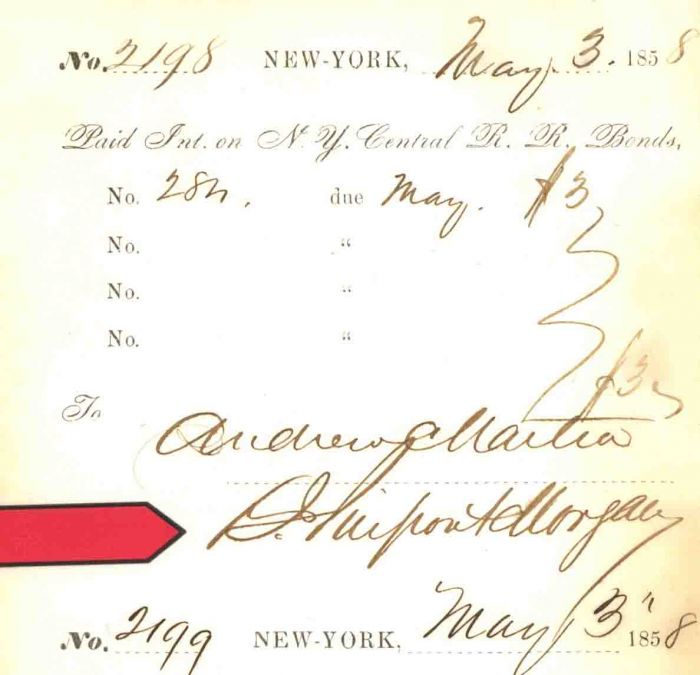 No. 2198 NEW-YORK, May 3. 1858
Paid Int. on N. Y. Central R. R. Bonds,
No. 284. due May. $3
No. “
No. “
No. “
$3
To
Andrew Martin
J. Pierpont Morgan
No. 2199 NEW-YORK, May 3" 1858